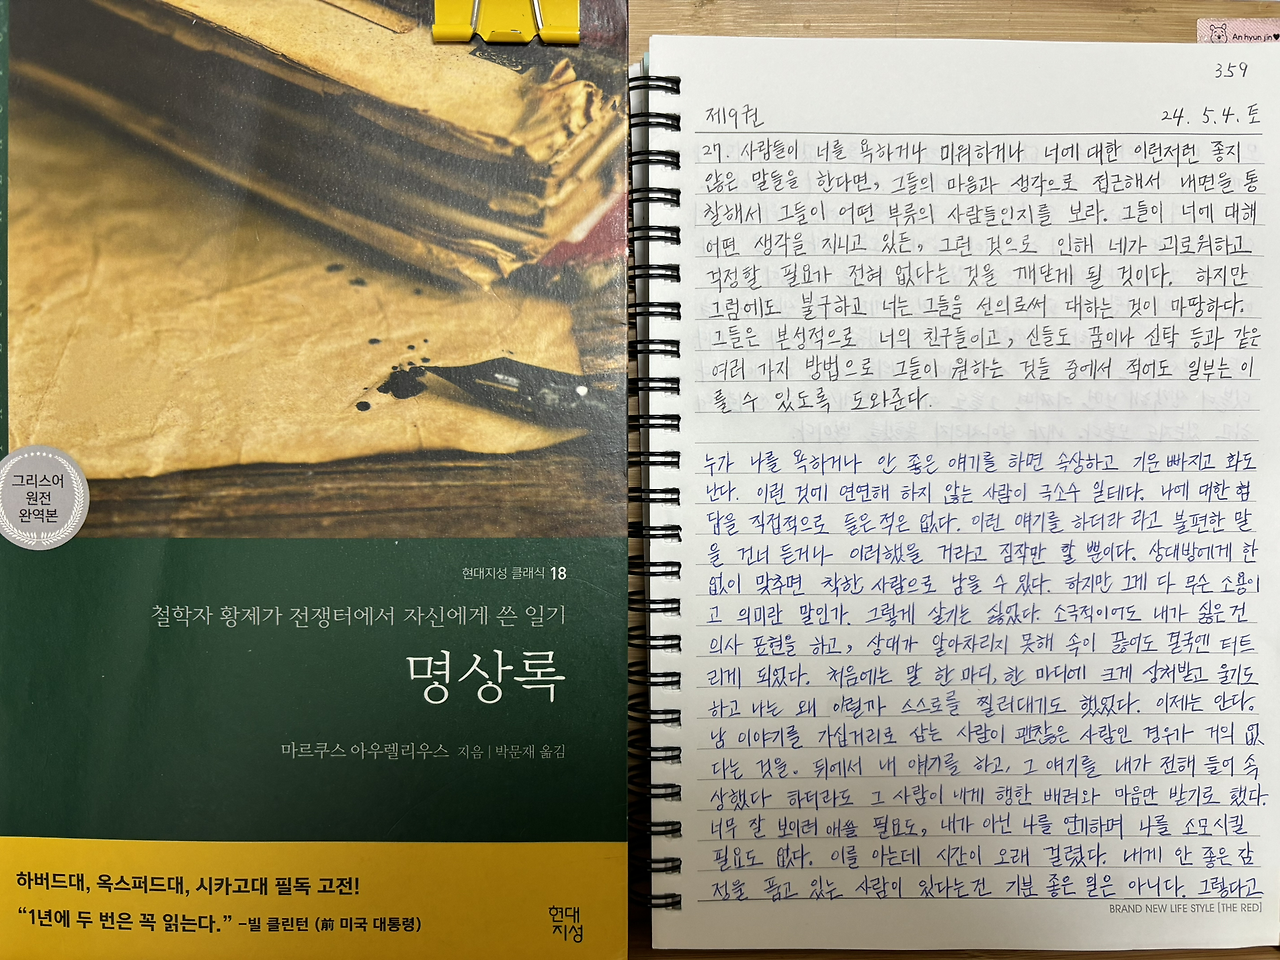 그리스어
원전
완역본
현대지성 클래식 18
철학자 황제가 전쟁터에서 자신에게 쓴 일기
명상록
마르쿠스 아우렐리우스 지음 | 박문재 옮김
하버드대, 옥스퍼드대, 시카고대 필독 고전!
“1년에 두 번은 꼭 읽는다.” –빌 클린턴 (前 미국 대통령)
현대
지성
An hyun jin♥
359
제9권 24. 5.4. 토
27. 사람들이 너를 욕하거나 미워하거나 너에 대한 이런저런 좋지
않은 말들을 한다면, 그들의 마음과 생각으로 접근해서 내면을 통
찰해서 그들이 어떤 부류의 사람들인지를 보라. 그들이 너에 대해
어떤 생각을 지니고 있든, 그런 것으로 인해 네가 괴로워하고
걱정할 필요가 전혀 없다는 것을 깨닫게 될 것이다. 하지만
그럼에도 불구하고 너는 그들을 선의로써 대하는 것이 마땅하다.
그들은 본성적으로 너의 친구들이고, 신들도 꿈이나 신탁 등과 같은
여러 가지 방법으로 그들이 원하는 것들 중에서 적어도 일부는 이
룰 수 있도록 도와준다.
누가 나를 욕하거나 안 좋은 얘기를 하면 속상하고 기운 빠지고 화도
난다. 이런 것에 연연해 하지 않는 사람이 극소수 일테다. 나에 대한 험
담을 직접적으로 들은 적은 없다. 이런 얘기를 하더라 라고 불편한 말
을 건너 듣거나 이러했을 거라고 짐작만 할 뿐이다. 상대방에게 한
없이 맞추면 착한 사람으로 남을 수 있다. 하지만 그게 다 무슨 소용이
고 의미란 말인가. 그렇게 살기는 싫었다. 소극적이어도 내가 싫은 건
의사 표현을 하고, 상대가 알아차리지 못해 속이 끓어도 결국엔 터트
리게 되었다. 처음에는 말 한 마디, 한 마디에 크게 상처받고 울기도
하고 나는 왜 이럴까 스스로를 찔러대기도 했었다. 이제는 안다.
남 이야기를 가십거리로 삼는 사람이 괜찮은 사람인 경우가 거의 없
다는 것을. 뒤에서 내 얘기를 하고, 그 얘기를 내가 전해 들어 속
상했다 하더라도 그 사람이 내게 행한 배려와 마음만 받기로 했다.
너무 잘 보이려 애쓸 필요도, 내가 아닌 나를 연기하며 나를 소모시킬
필요도 없다. 이를 아는데 시간이 오래 걸렸다. 내게 안 좋은 감
정을 품고 있는 사람이 있다는 건 기분 좋은 일은 아니다. 그렇다고
BRAND NEW LIFE STYLE [THE RED]